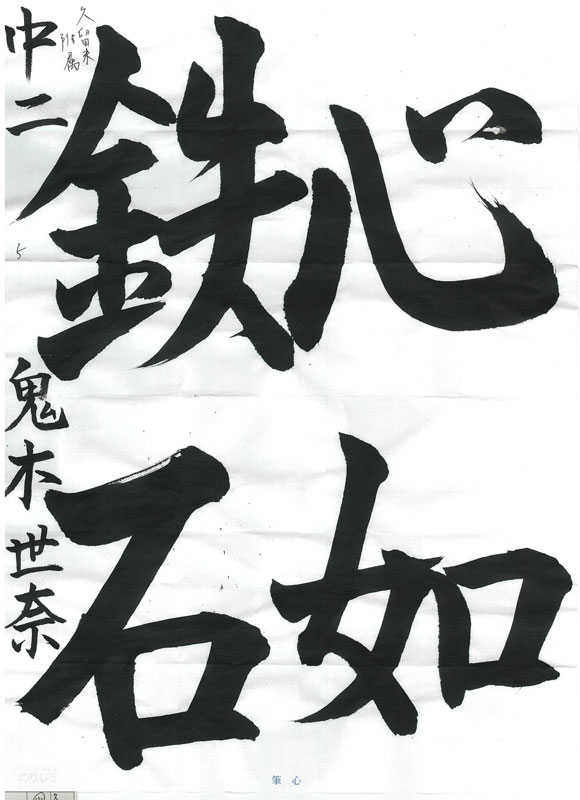 心如
鉄石
久留米
附属
中二
鬼木世奈
心筆